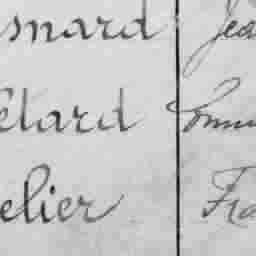 snard Jea
elard
elier Fra